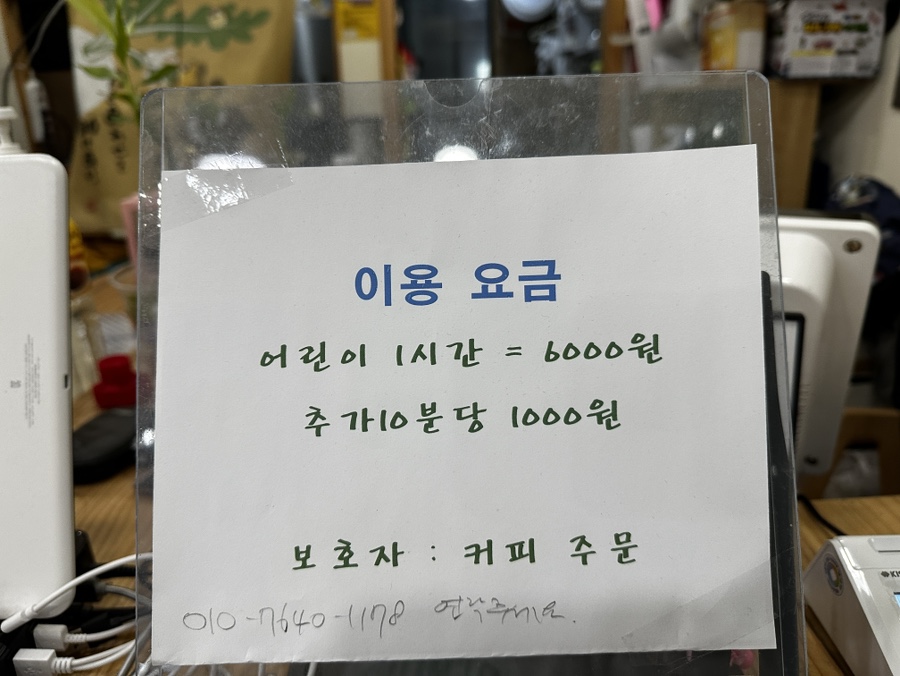 이용 요금
어린이 1시간 = 6000원
추가10분당 1000원
보호자 : 커피 주문
010-7640-1178 연락주세요.